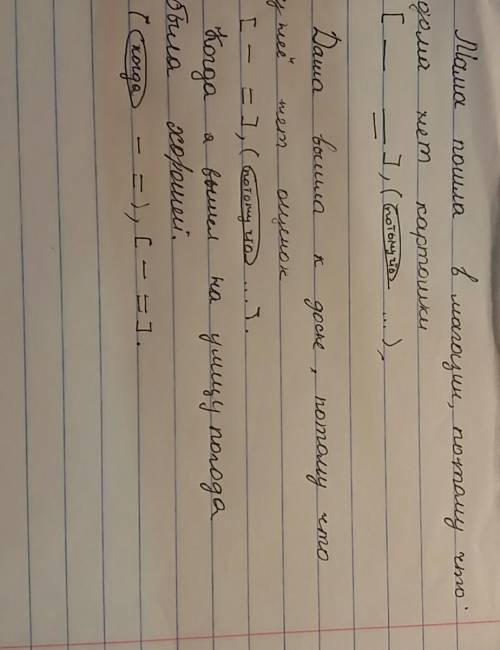 Мама пошла в магазин, потому что
дома нет картошки
[ — = ], (потому что ...),
Даша вышла к доске, потому что
у неё нет оценок
[ – = ], (потому что ...).
Когда я вышел на улицу погода
была хорошей.
(когда – = ), [ – = ].